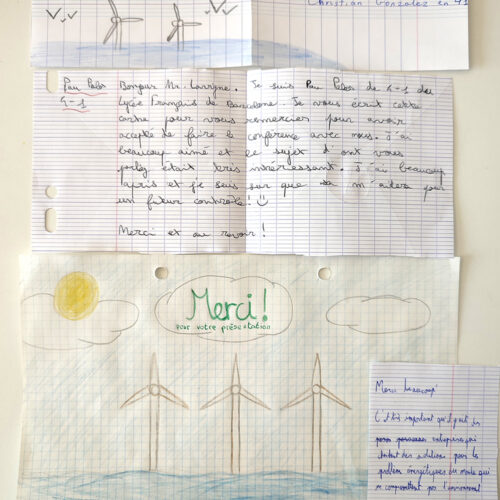 Christian Gonzalez en 4
Pau Palos
4-1
Bonjour Mr. Lavigne. Je suis Pau Palos de 4-1 du
Lycée Français de Barcelone. Je vous écrit cette
carte pour vous remercier pour avoir
accepté de faire la conférence avec nous. J'ai
beaucoup aimé et le sujet d ont vous
parlez était très intéressant. J'ai beaucoup
apris et je suis sur que sa m'aidera pour
un futur contrôle!
Merci et au revoir!
Merci!
pour votre présentation
Merci beaucoup
C'était important qu'il y ait
entreprises qui
des solutions pour les
problèm énergétiques du monde qui
ne compromettent pas l'environnement